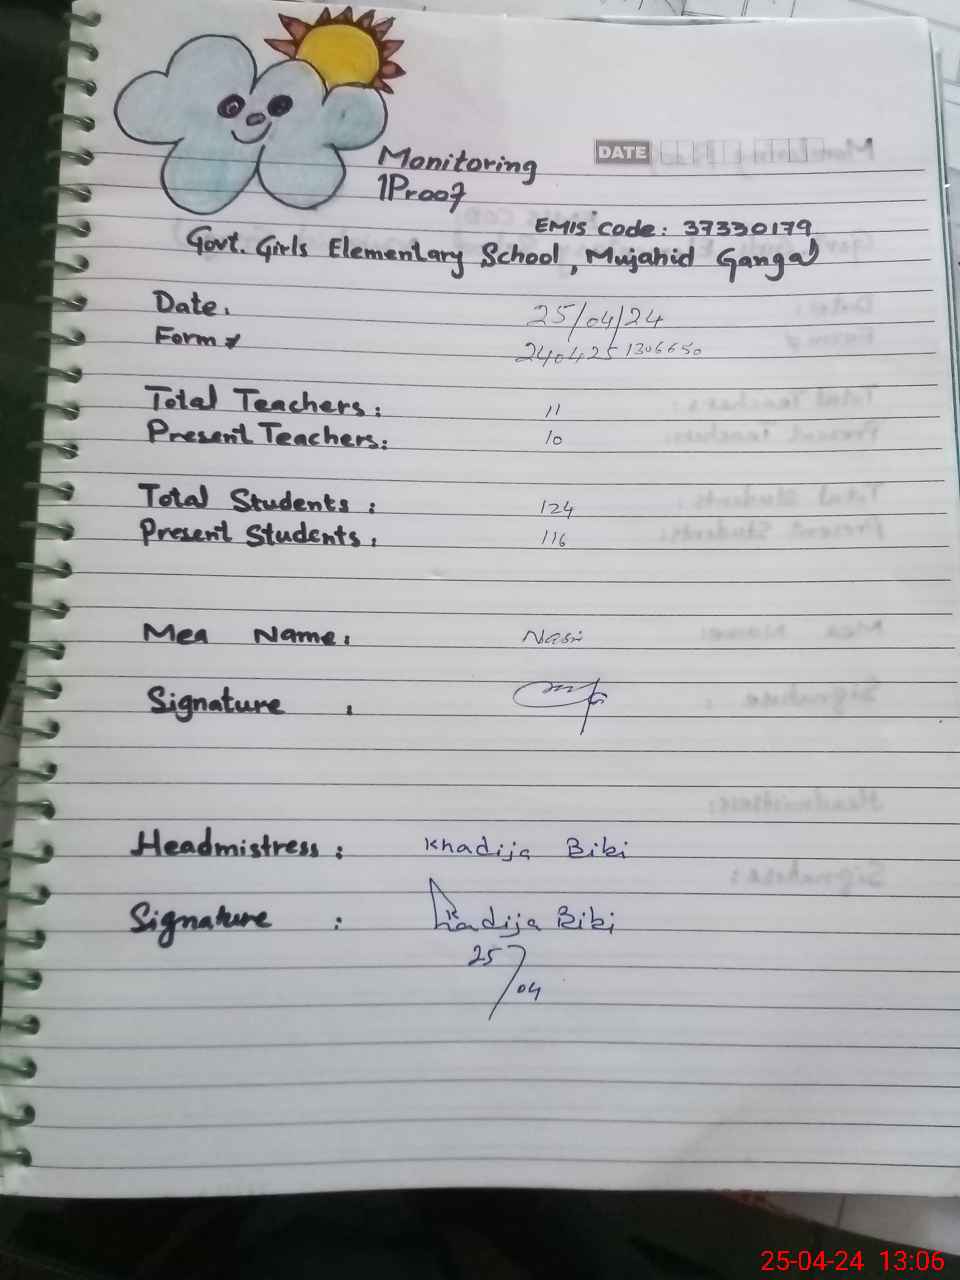 Monitoring
1Proof
DATE
EMIS Code: 37330179
Govt. Girls Elementary School, Mujahid Ganga
Date: 25/04/24
Form # 2404251306650
Total Teachers: 11
Present Teachers: 10
Total Students: 124
Present Students: 116
Mea Name:
Signature :
Headmistress: Khadija Bibi
Signature : Khadija Bibi
25/04
25-04-24 13:06